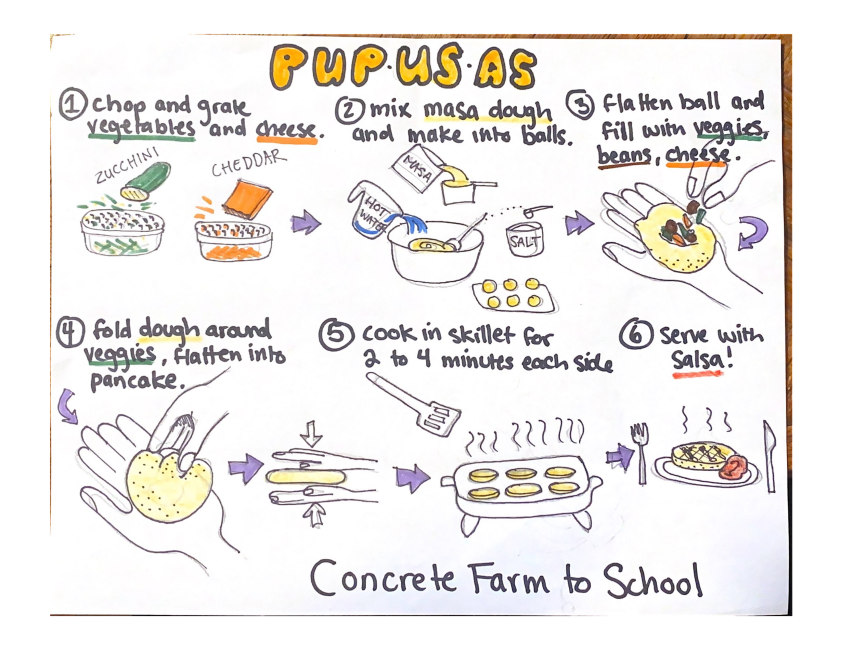 PUP·US·AS
1 Chop and grate
vegetables and cheese.
ZUCCHINI
CHEDDAR
2 mix masa dough
and make into balls.
MASA
HOT
WATER
SALT
3 Flatten ball and
fill with veggies,
beans, cheese.
4 fold dough around
veggies, flatten into
pancake.
5 cook in skillet for
2 to 4 minutes each side
6 Serve with
Salsa!
Concrete Farm to School